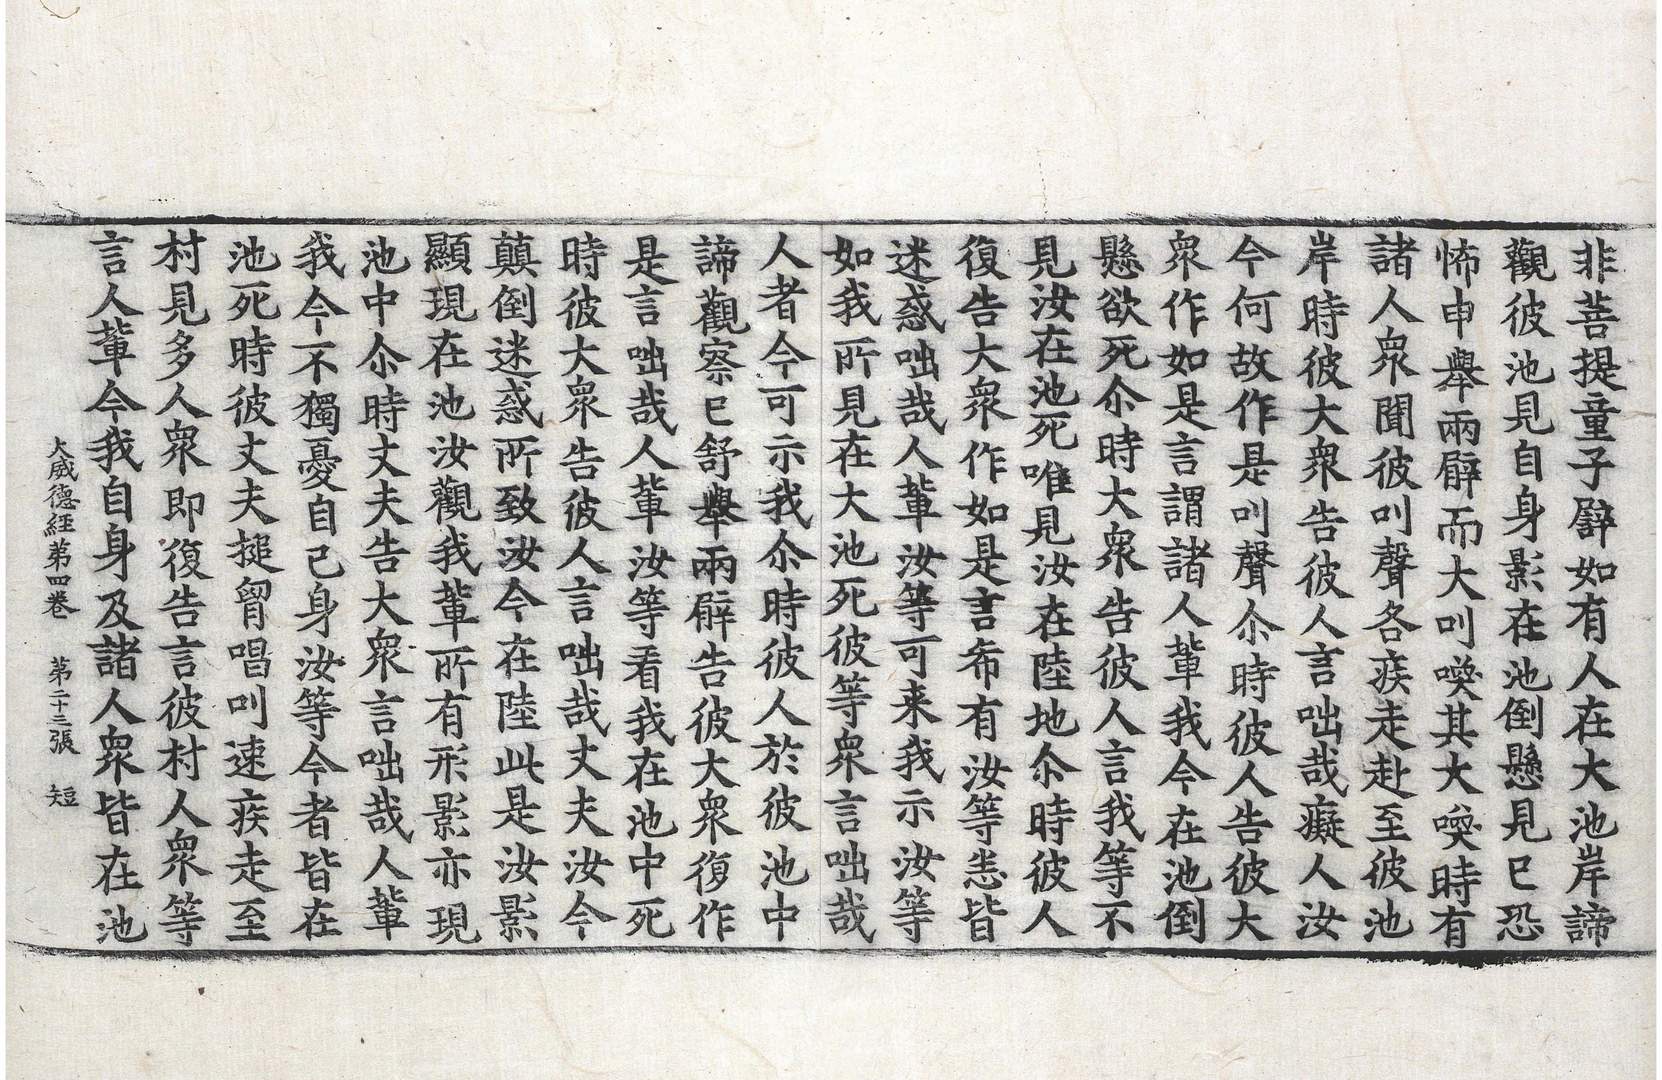 非菩提童子譬如有人在大池岸諦
觀彼池見自身影在池倒懸見已恐
怖申舉兩臂而大叫喚其大喚時有
諸人衆聞彼叫聲各疾走赴至彼池
岸時彼大衆告彼人言咄哉癡人汝
今何故作是叫聲尒時彼人告彼大
衆作如是言謂諸人軰我今在池倒
懸欲死尒時大衆告彼人言我等不
見汝在池死唯見汝在陸地尒時彼人
復告大衆作如是言希有汝等恙皆
迷惑咄哉人軰汝等可来我示汝等
如我所見在大池死彼等衆言咄哉
人者今可示我尒時彼人於彼池中
諦觀察已舒舉兩臂告彼大衆復作
是言咄哉人軰汝等看我在池中死
時彼大衆告彼人言咄哉丈夫汝今
顛倒迷惑所致汝今在陸此是汝影
顯現在池汝觀我軰所有形影亦現
池中尒時丈夫告大衆言咄哉人軰
我今不獨憂自己身汝等今者皆在
池死時彼丈夫搥胷唱叫速疾走至
村見多人衆即復告言彼村人衆等
言人軰今我自身及諸人衆皆在池
大威德経第四卷　第二十三張　短